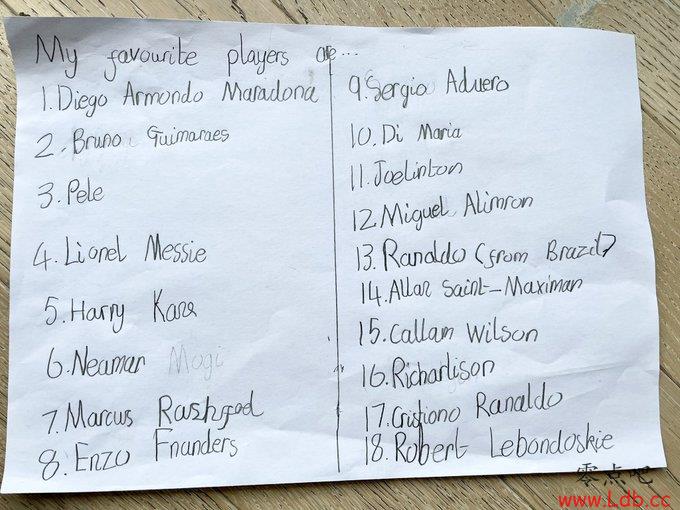 My favourite players are...
1. Diego Armondo Maradona
2. Bruno Guimaraes
3. Pele
4. Lionel Messie
5. Harry Kane
6. Neamar Magi
7. Marcus Rashford
8. Enzo Fnanders
9. Sergio Aduero
10. Di Maria
11. Joelinton
12. Miguel Alimron
13. Ranaldo (from Brazil)
14. Allan Saint-Maximan
15. Callam Wilson
16. Richarlison
17. Cristiono Ranaldo
18. Robert Lebondoskie
零点吧
www.Ldb.cc